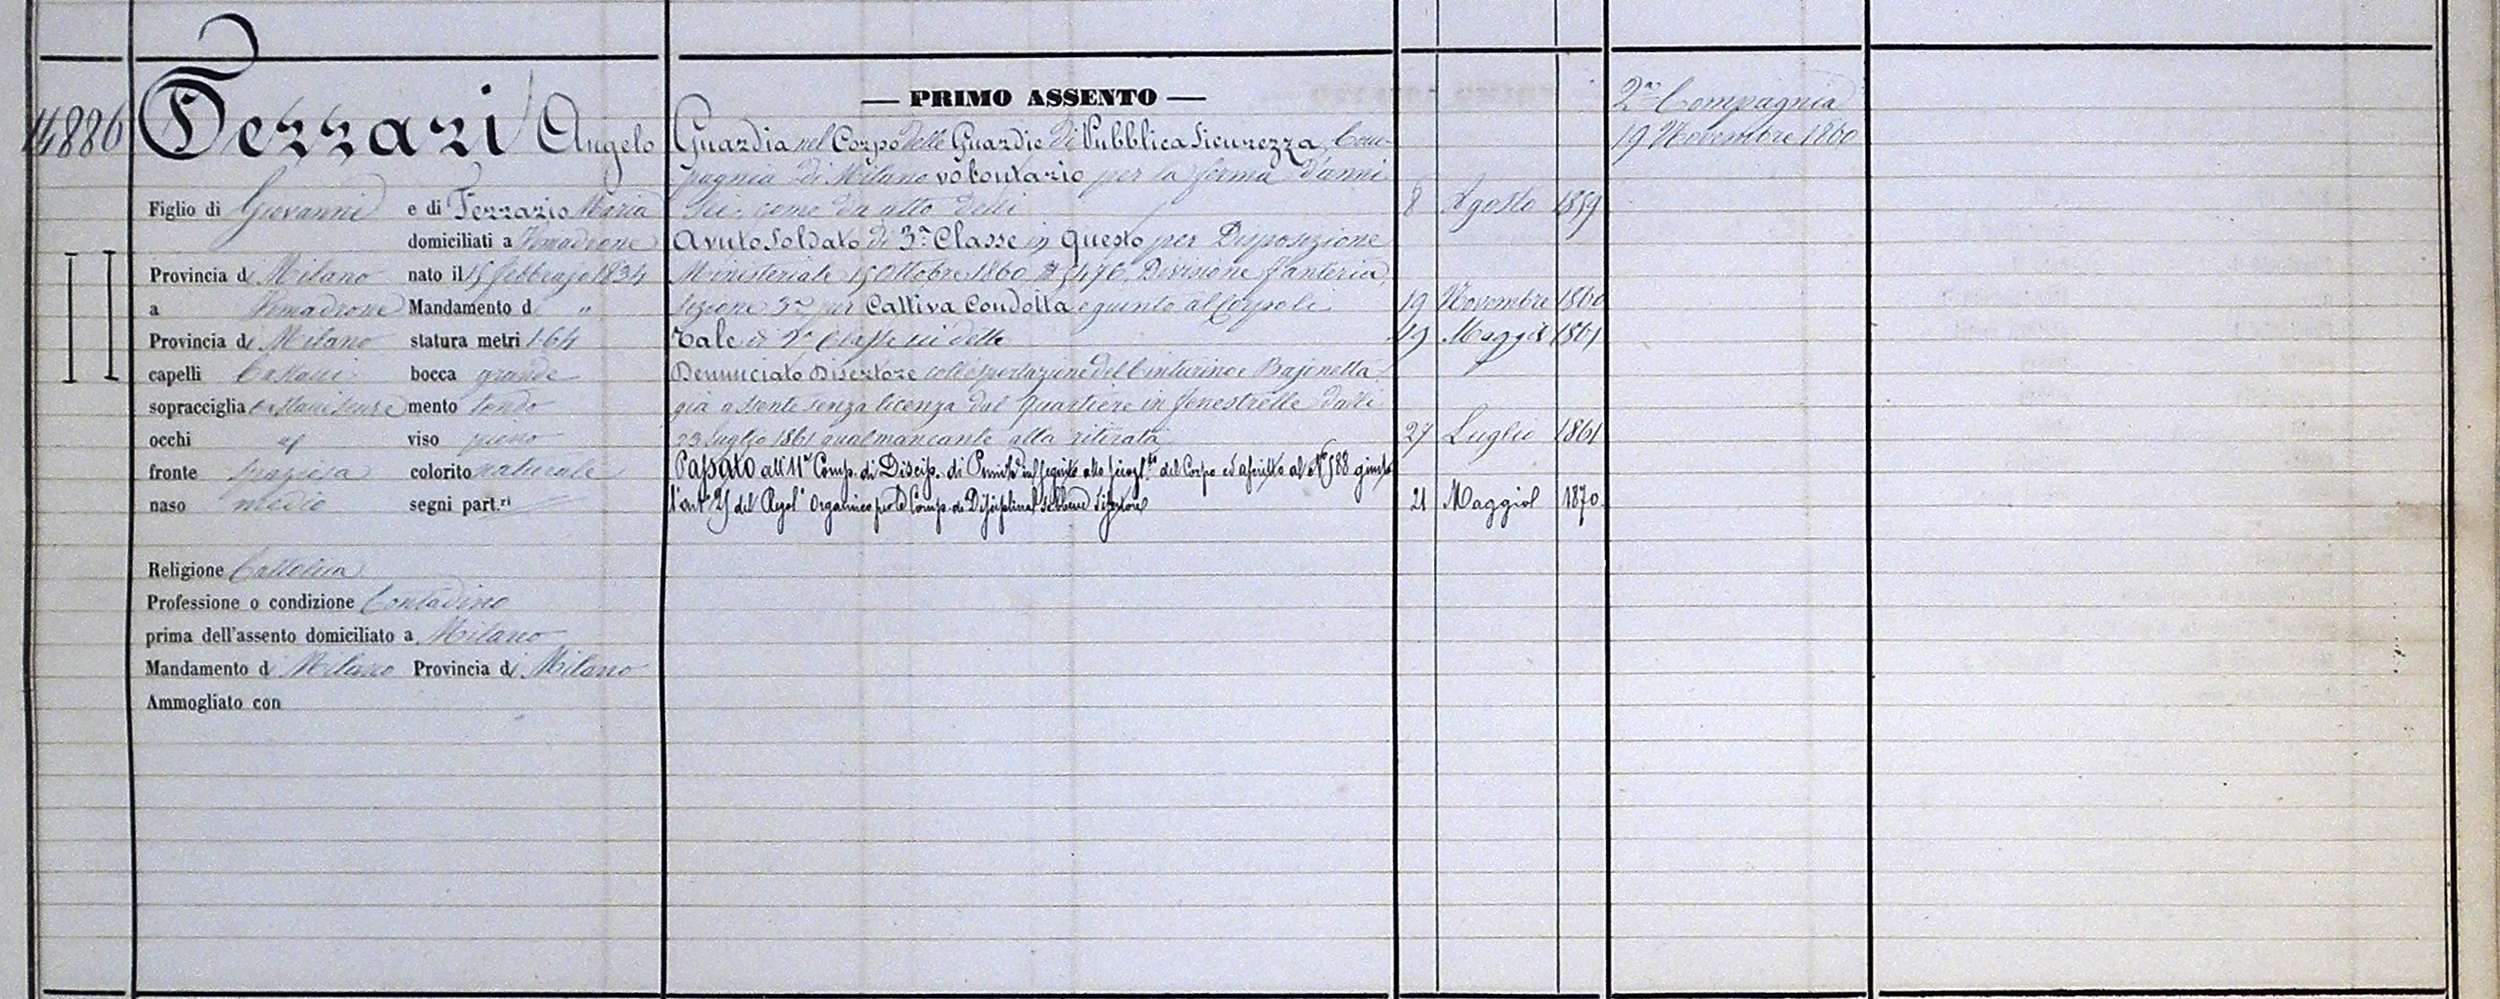 14886
Ferrari Angelo
Figlio di Giovanni e di Ferrario Maria
domiciliati a Vimadrone
Provincia di Milano nato il 15 febbrajo 1834
a Vimadrone Mandamento d "
Provincia di Milano statura metri 1.64
capelli Castani bocca grande
sopracciglia mento tondo
occhi viso pieno
fronte spaziosa colorito naturale
naso medio segni part.ri
Religione Cattolica
Professione o condizione Contadino
prima dell'assento domiciliato a Milano
Mandamento di Milano Provincia di Milano
Ammogliato con
— PRIMO ASSENTO —
Guardia nel Corpo delle Guardie di Pubblica Sicurezza, Com-
pagnia di Milano volontario per la ferma d'anni
sei, come da atto delli 8 Agosto 1859
Avuto Soldato di 3ª Classe in questo per Disposizione
Ministeriale 15 Ottobre 1860 Nº 5476, Divisione Fanteria,
Sezione 3ª, per Cattiva Condotta e giunto al Corpo li 19 Novembre 1860
Tale di 2ª Classe li detto 19 Maggio 1861
Denunciato Disertore coll'esportazione del Cinturino e Bajonetta
già assente senza licenza dal Quartiere in Fenestrelle dalli
23 Luglio 1861 qual mancante alla ritirata 27 Luglio 1861
Passato all'11ª Comp. di Discip. di in seguito allo del Corpo ed ascritto al Nº 588 giusta
l'art. del Regol. Organico per le Comp. di Disciplina sebbene disertore 21 Maggio 1870
2ª Compagnia
19 Novembre 1860